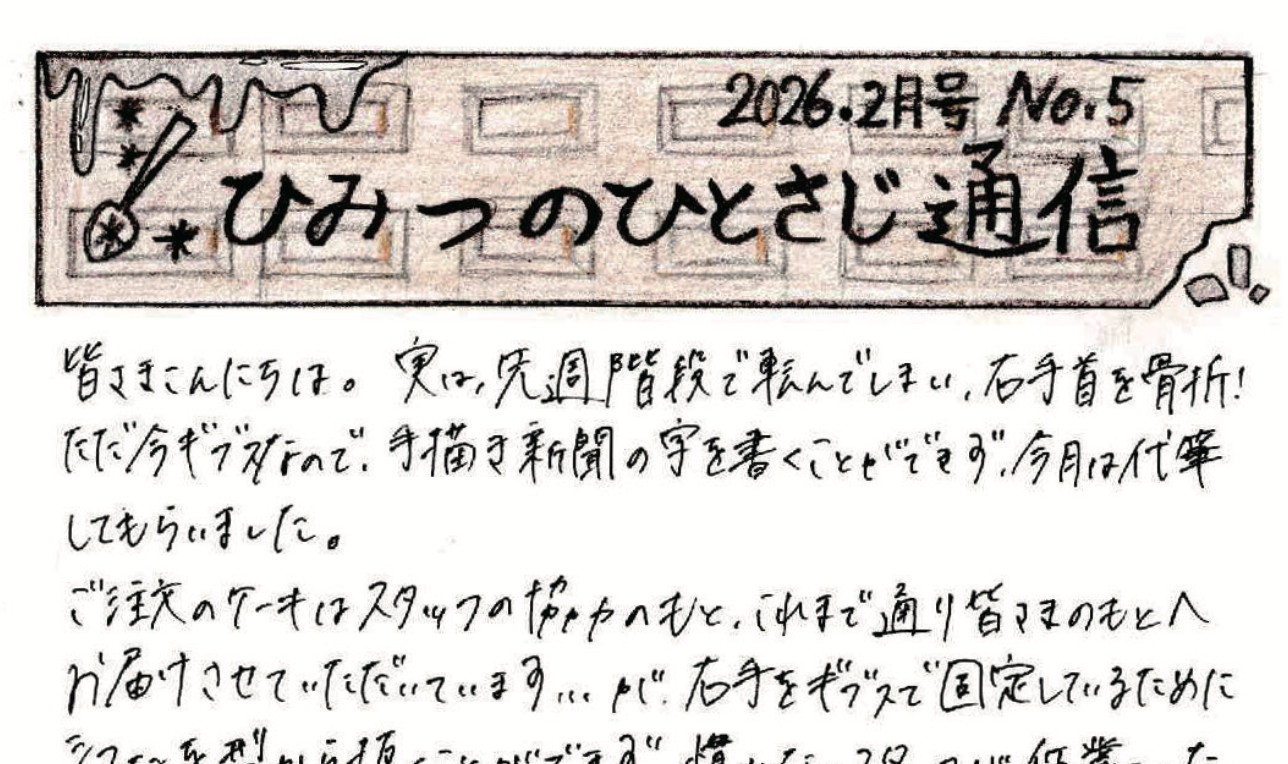 2026.2月号 No.5
ひみつのひとさじ通信
皆さまこんにちは。実は、先週階段で転んでしまい、右手首を骨折!
ただ今ギプスなので、手描き新聞の字を書くことができず、今月は代筆
してもらいました。
ご注文のケーキはスタッフの協力のもと、これまで通り皆さまのもとへ
お届けさせていただいています...が、右手をギプスで固定しているために
を型から抜くことができず